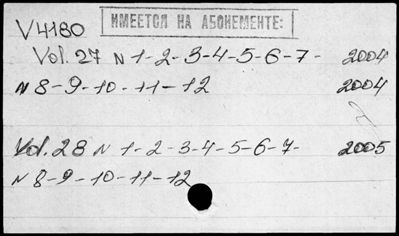 ИМЕЕТСЯ НА АБОНЕМЕНТЕ:
V4180
Vol. 27 N 1-2-3-4-5-6-7- 2004
N 8-9-10-11-12 2004
Vol. 28 N 1-2-3-4-5-6-7- 2005
N 8-9-10-11-12